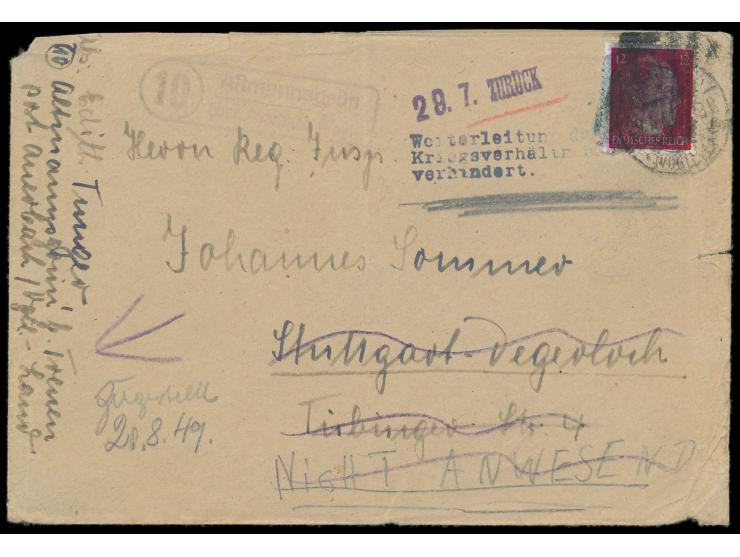 10 Altmannsgrün
29. 7. ZURÜCK
12 12
DEUTSCHES REICH
(VOGTL)
Weiterleitung du
Kriegsverhältn
verhindert.
Herrn Reg. Insp.
Johannes Sommer
Stuttgart-Degerloch
Tübinger Str. 4
NICHT ANWESEND
Zugestellt
28.8.49.
Abs. Edith Tunger
10 Altmannsgrün b. Treuen
post Auerbach / Vogtl-Land